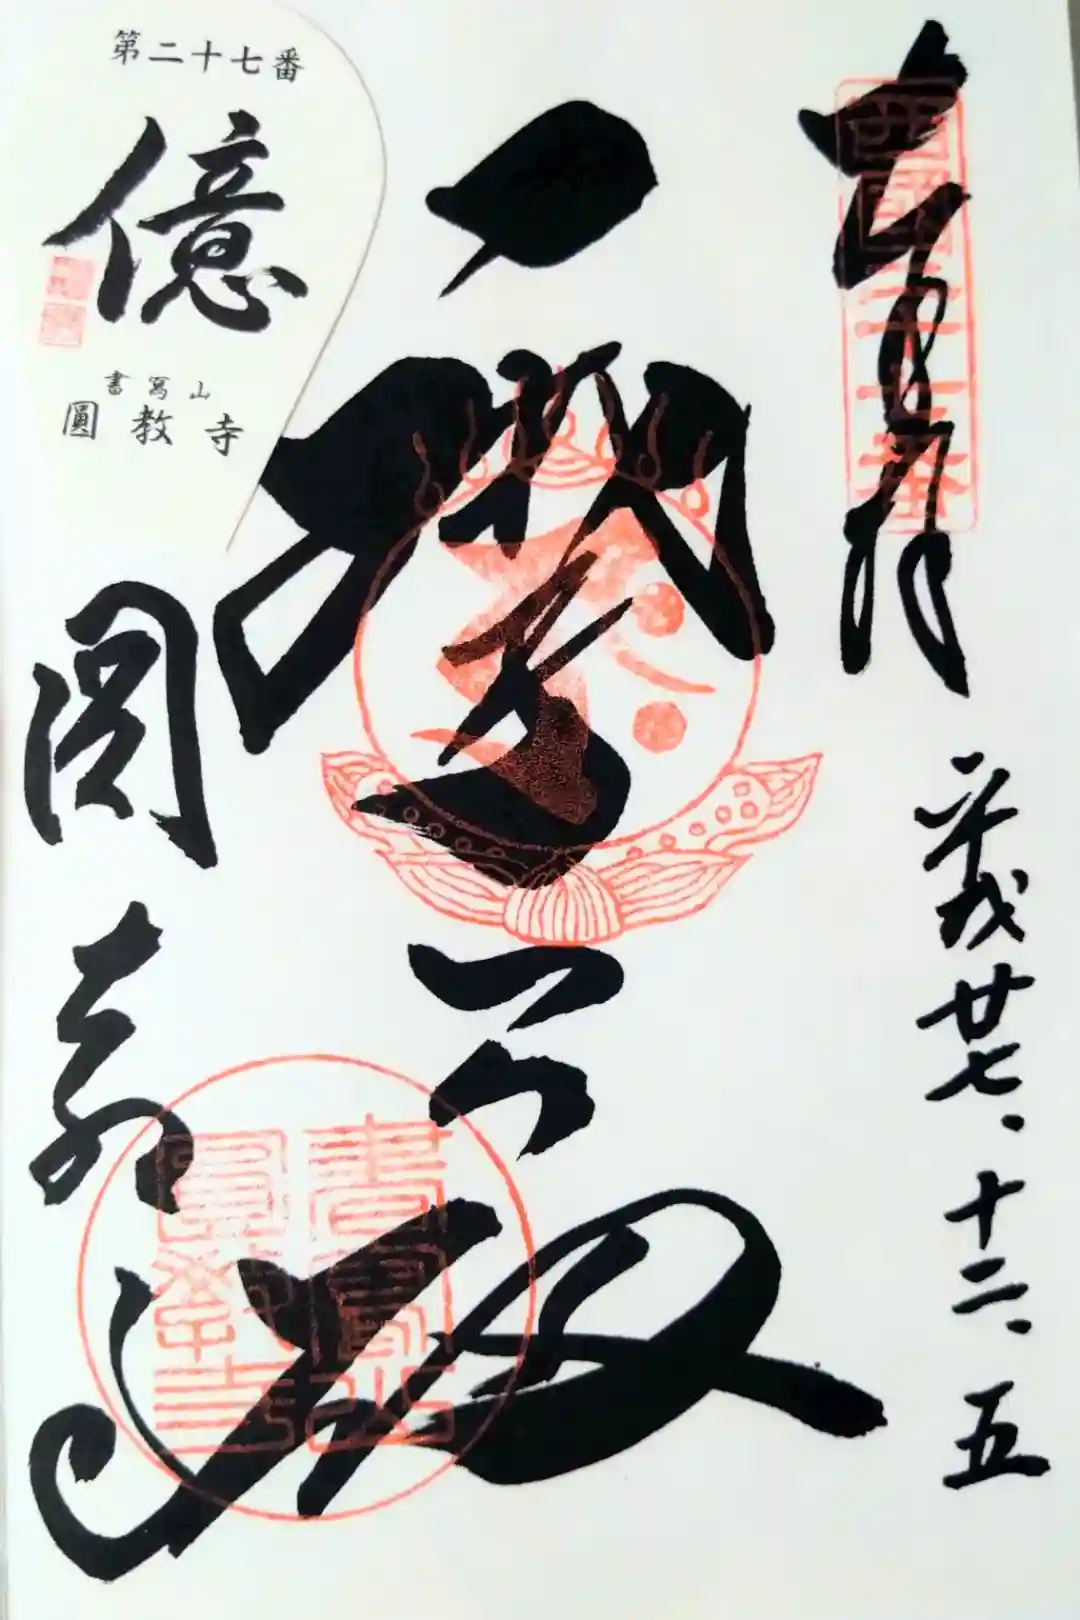 奉拝
西國二十七番
平成廿七、十二、五
摩尼殿
圓教寺
書寫山
圓教寺
第二十七番
億
書寫山
圓教寺